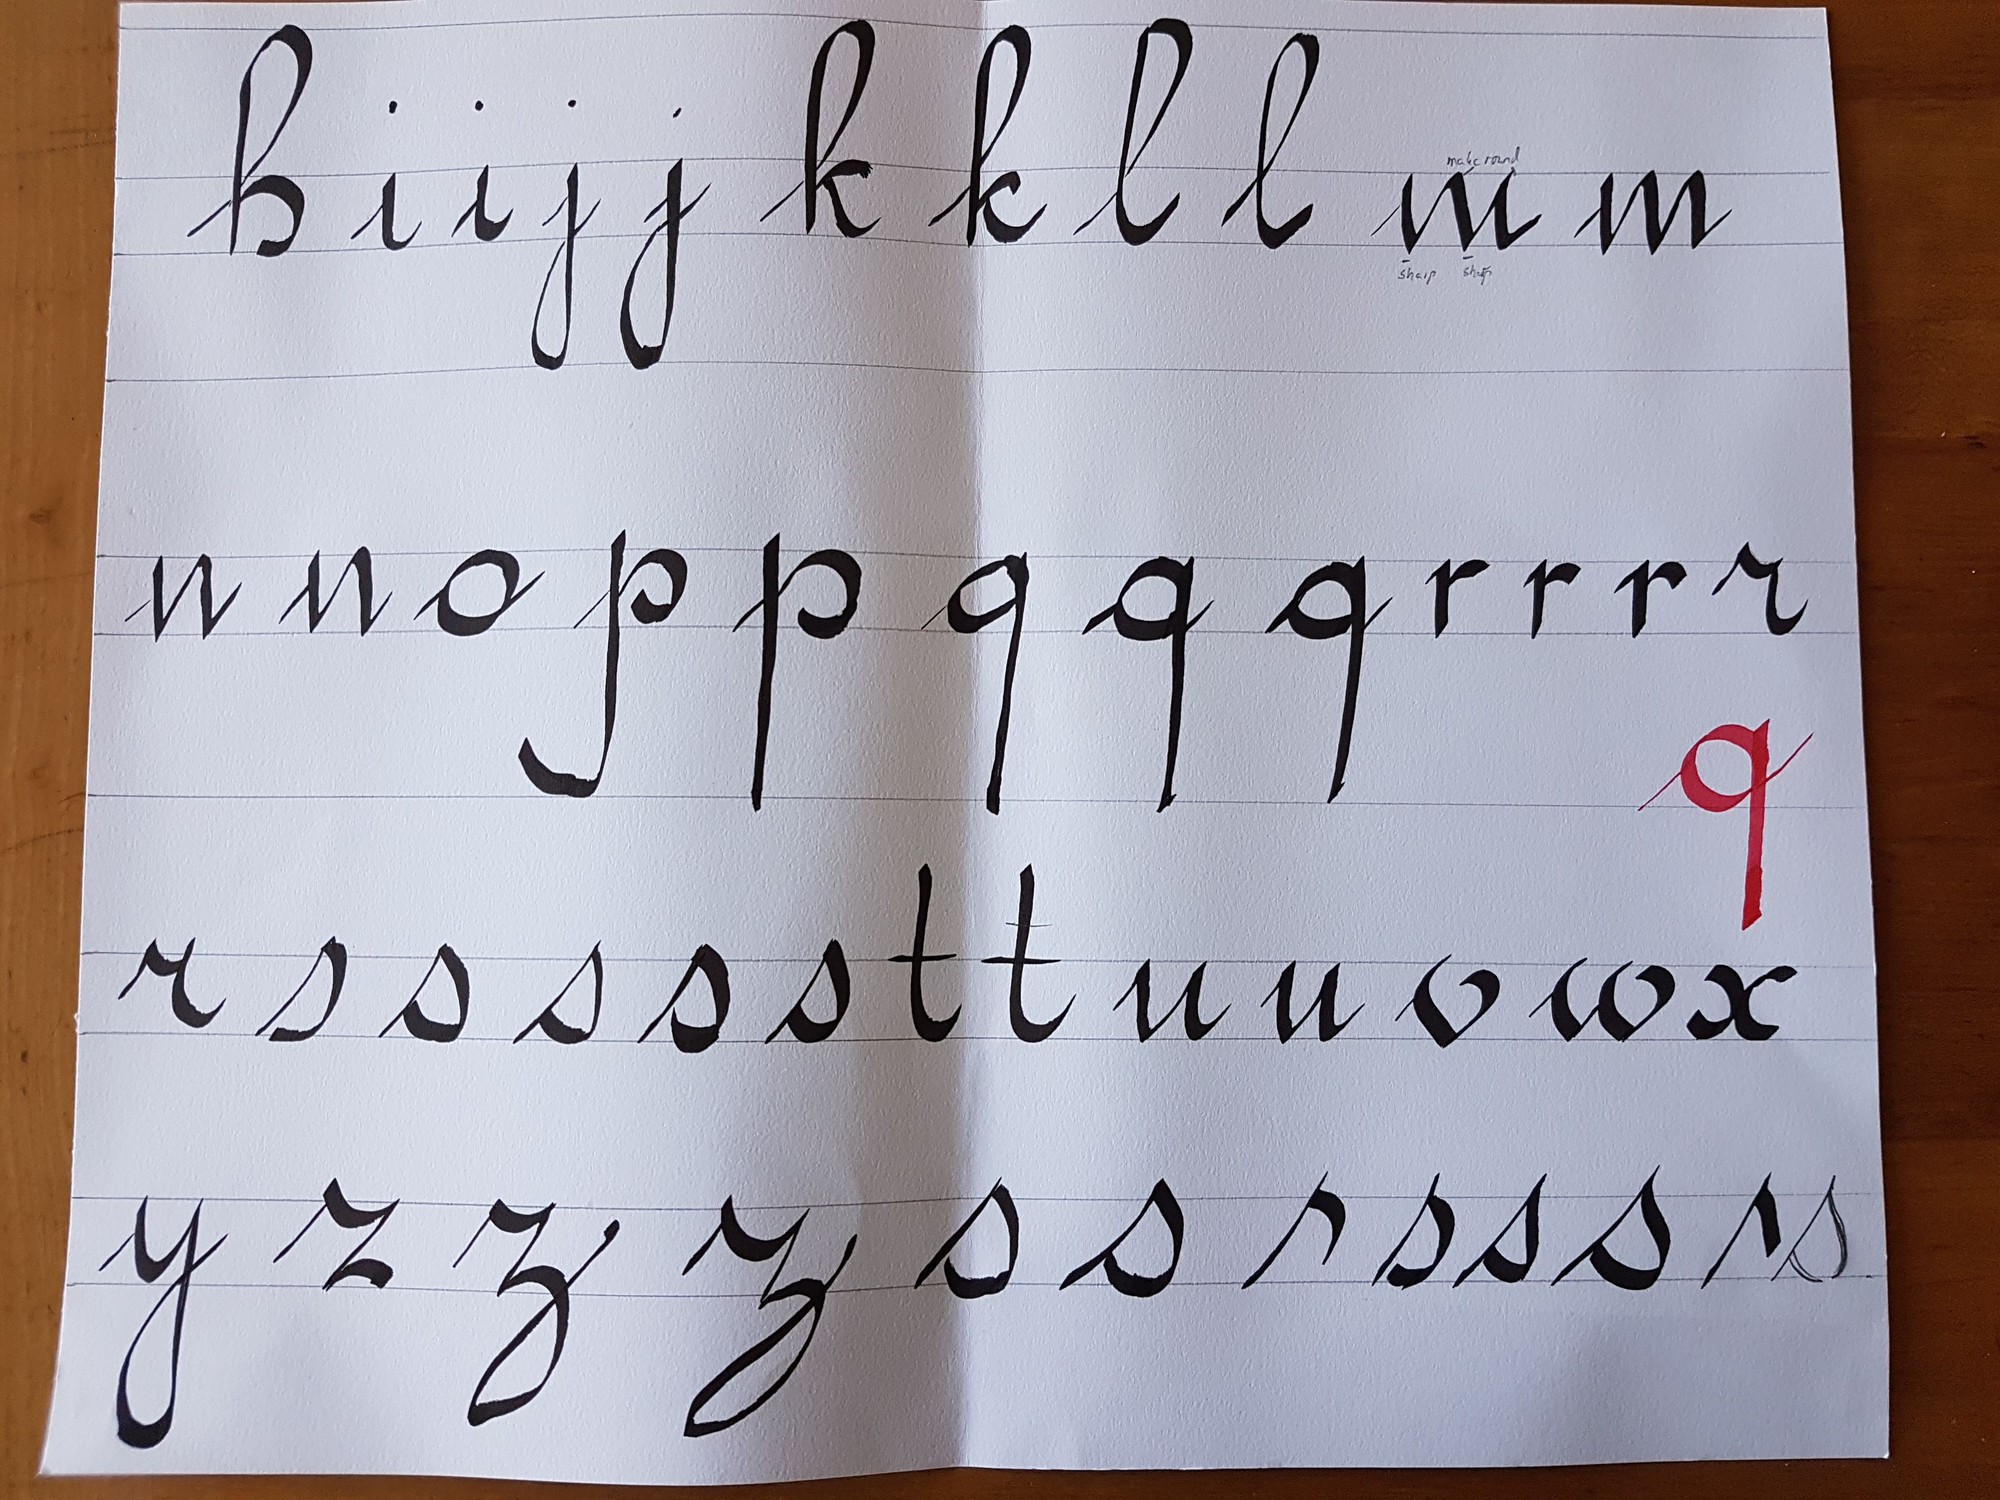 h i i j j k k l l m m
make round
sharp sharp
n n o p p q q q r r r r
q
r s s s s s t t u u v w x
y z z z s s r s s s r s